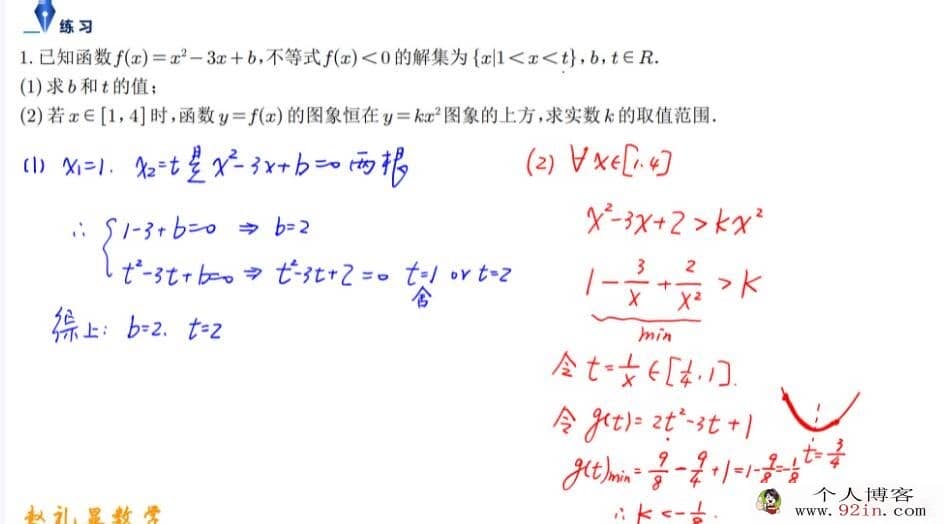 练习
1. 已知函数 f(x)=x²-3x+b,不等式 f(x)<0 的解集为 {x|1<x<t},b,t∈R.
(1) 求 b 和 t 的值;
(2) 若 x∈[1,4] 时,函数 y=f(x) 的图象恒在 y=kx² 图象的上方,求实数 k 的取值范围.
(1) x₁=1. x₂=t 是 x²-3x+b=0 两根
∴ { 1-3+b=0 ⇒ b=2
t²-3t+b=0 ⇒ t²-3t+2=0 t=1 or t=2
舍
综上: b=2. t=2
(2) ∀x∈[1.4]
x²-3x+2>kx²
1-3/x+2/x²>k
min
令 t=1/x∈[1/4.1].
令 g(t)=2t²-3t+1
t=3/4
g(t)min=9/8-9/4+1=1-9/8=-1/8
∴ k<-1/8.
赵礼显数学
个人博客
www.92in.com